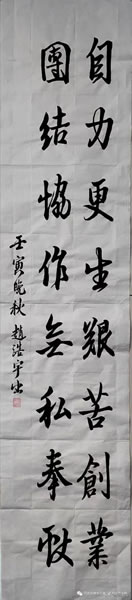 自力更生艱苦創業
團結協作無私奉獻
壬寅晚秋趙浩宇书